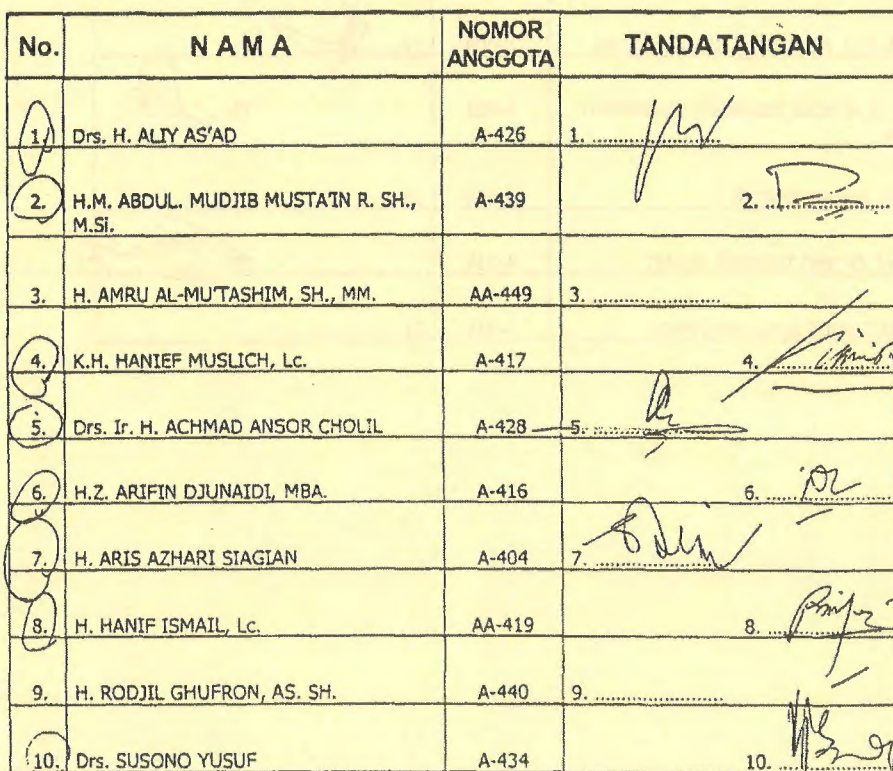 No. N A M A NOMOR ANGGOTA TANDA TANGAN
1. Drs. H. ALIY AS'AD A-426 1. ....................
2. H.M. ABDUL. MUDJIB MUSTA'IN R. SH., M.Si. A-439 2. ....................
3. H. AMRU AL-MU'TASHIM, SH., MM. AA-449 3. ....................
4. K.H. HANIEF MUSLICH, Lc. A-417 4. ....................
5. Drs. Ir. H. ACHMAD ANSOR CHOLIL A-428 5. ....................
6. H.Z. ARIFIN DJUNAIDI, MBA. A-416 6. ....................
7. H. ARIS AZHARI SIAGIAN A-404 7. ....................
8. H. HANIF ISMAIL, Lc. AA-419 8. ....................
9. H. RODJIL GHUFRON, AS. SH. A-440 9. ....................
10. Drs. SUSONO YUSUF A-434 10. ....................